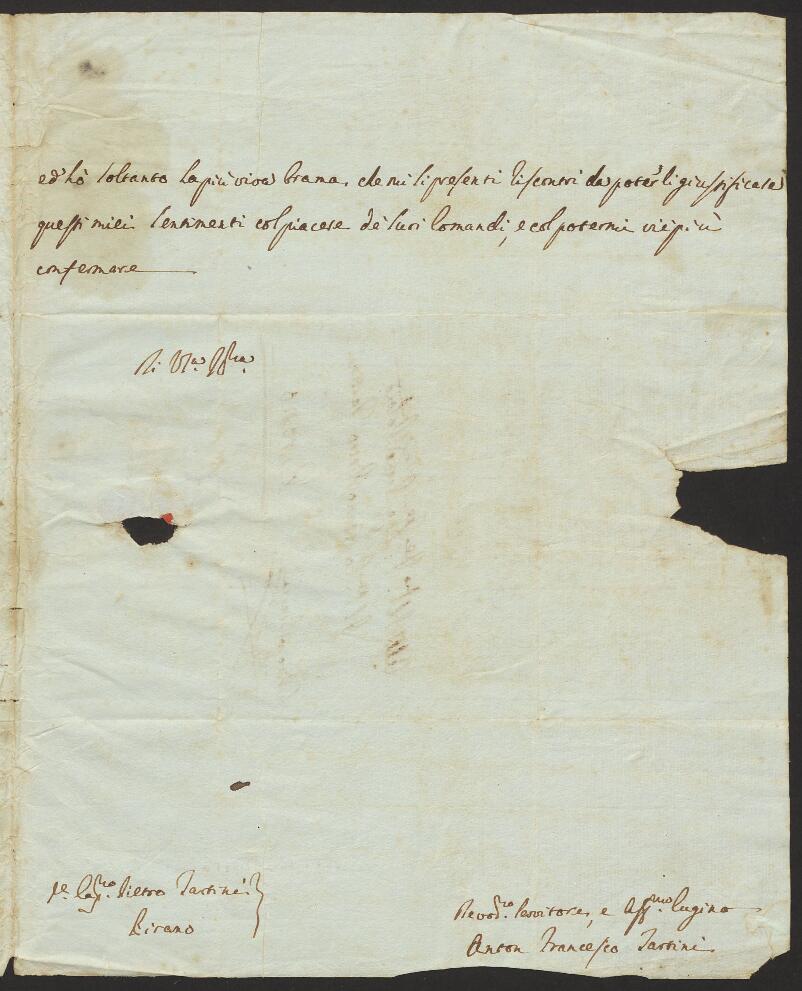 ed hò soltanto la più viva brama, che mi si presenti riscontri da poterli giustificare
questi miei sentimenti col piacere de suoi comandi, e col potermi vie più
confermare
Di V.S.
Pietro Tartini
Pirano
Servitore, e Aff.mo Cugino
Anton Francesco Tartini